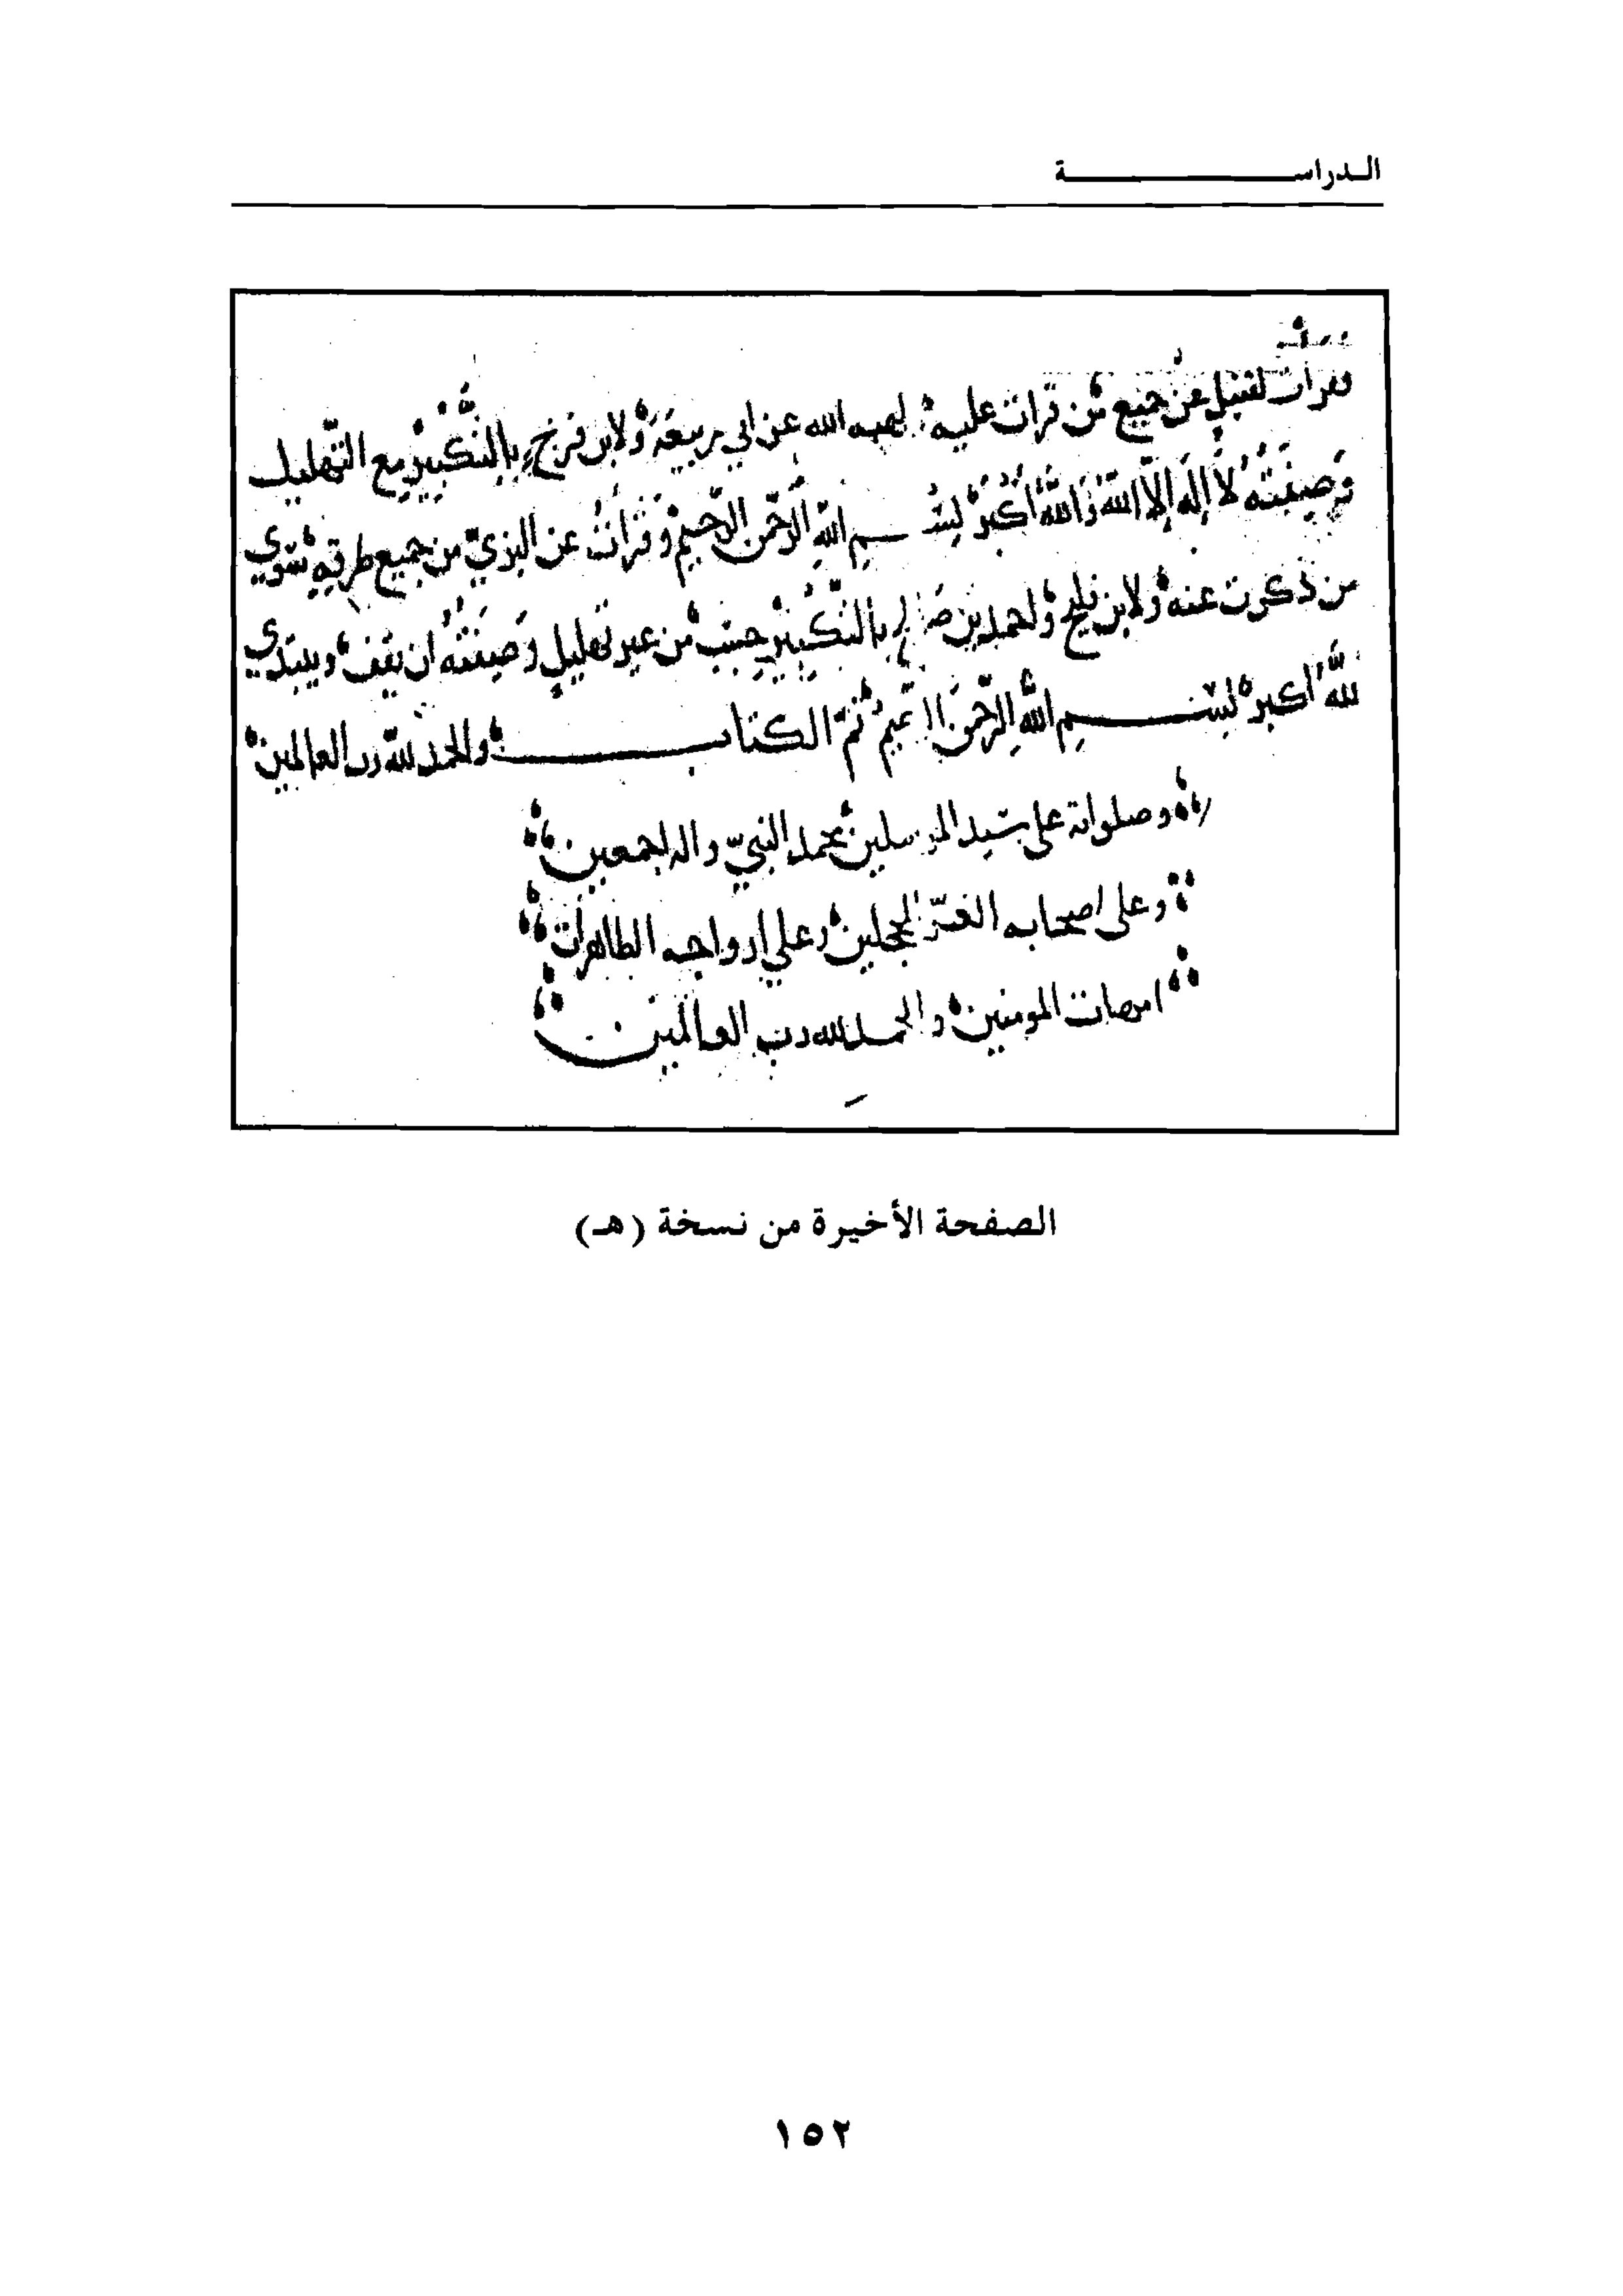 الدراسة
وقرأت لقنبل عن جميع من قرات عليه لهبه الله عن ابي ربيعة ولابن فرح بالتكبير مع التهليل
وَصِيغَتُهُ لَا إِلَهَ إِلَّا اللَّهُ وَاللَّهُ أَكْبَرُ بسم الله الرحمن الرحيم وقرأت عن البزي من جميع طرقه سوي
من ذكرت عنه ولابن فليح ولاحمد بن بالتكبير حسب من غير تهليل وصيغته ان يقف ويبتدي
الله اكبر بسم الله الرحمن الرحيم تم الكتاب والحمد لله رب العالمين
وصلواته على سيد المرسلين محمد النبيّ واله اجمعين
وعلى اصحابه الغرّ المحجلين وعلي ازواجه الطاهرات
امهات المومنين والحمد لله رب العالمين
الصفحة الأخيرة من نسخة (هـ)
١٥٢